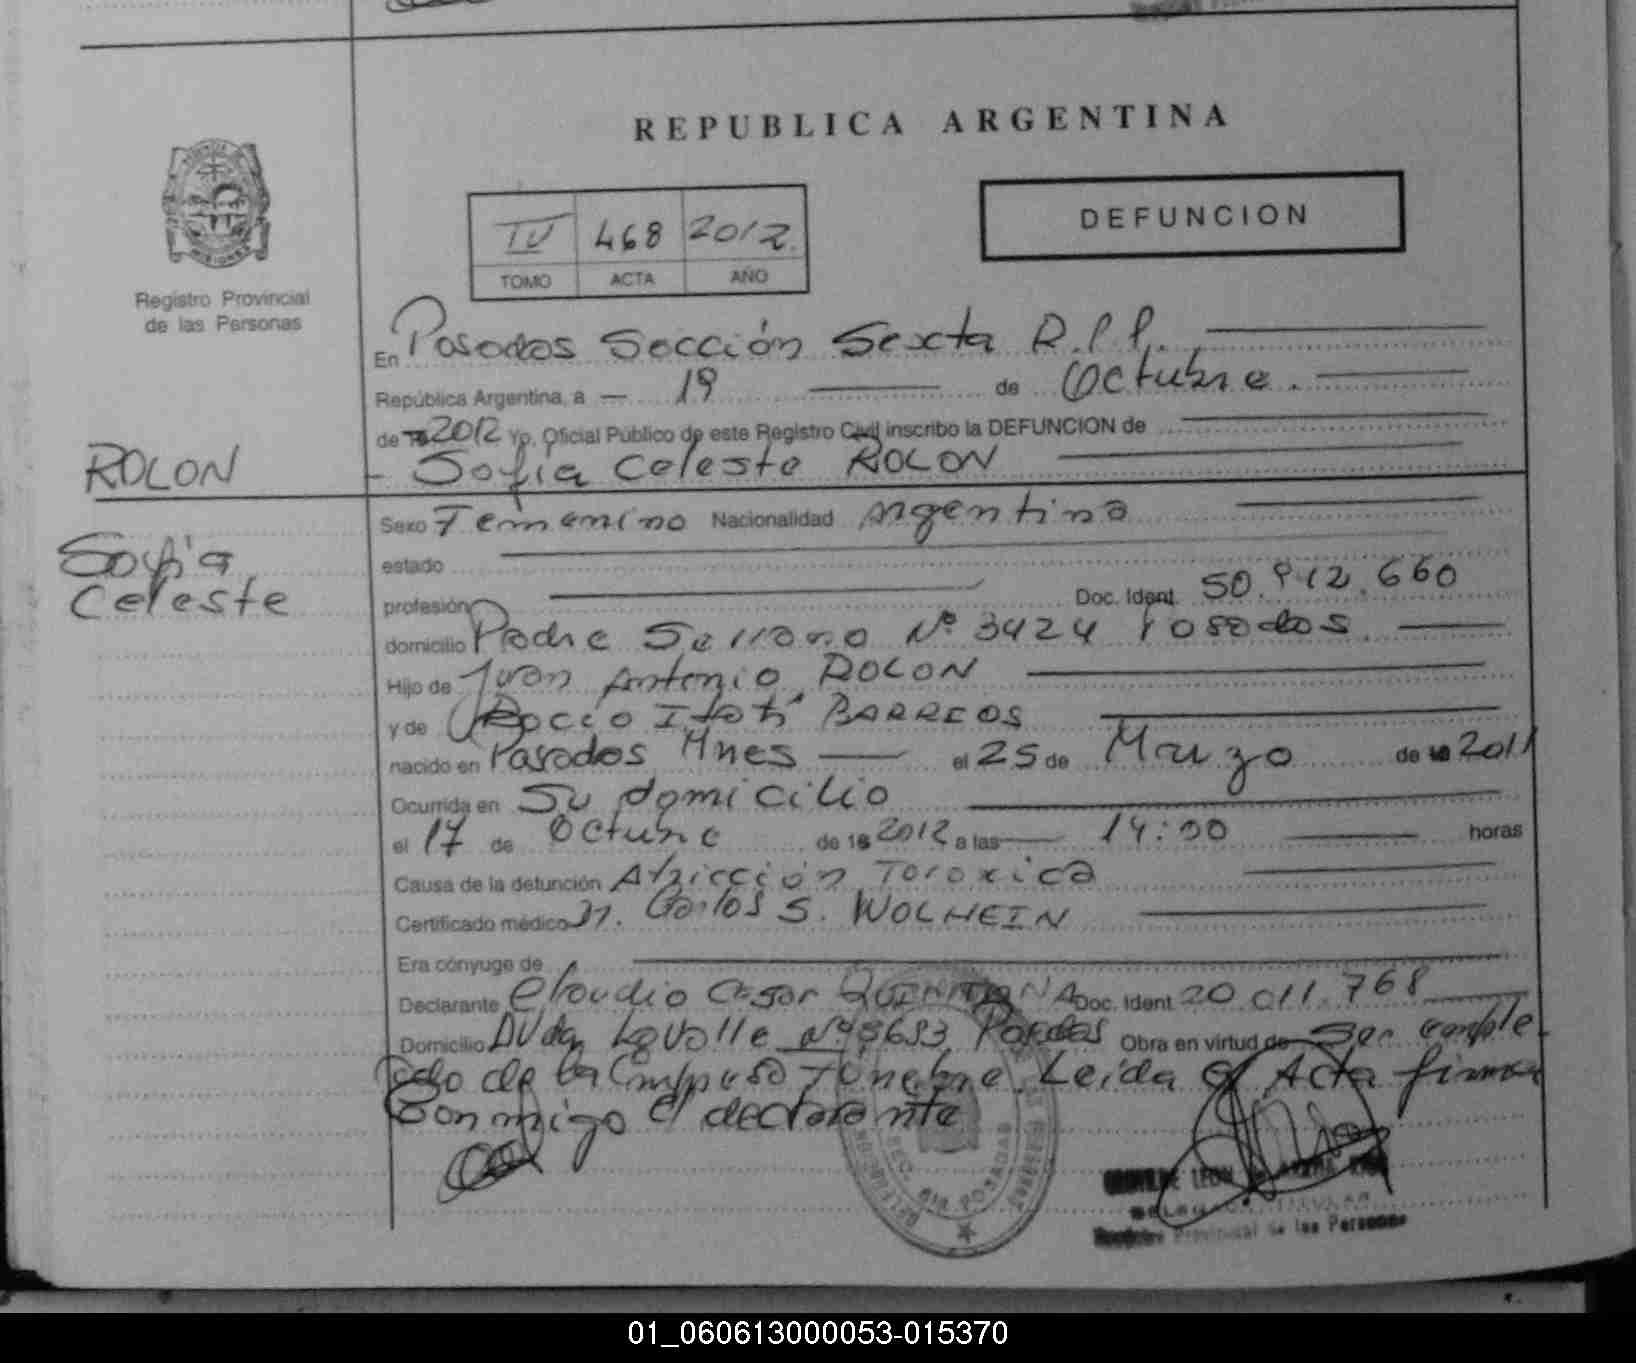 REPUBLICA ARGENTINA
IV 468 2012
TOMO ACTA AÑO
DEFUNCION
Registro Provincial
de las Personas
En Posadas Sección Sexta R.P.P.
República Argentina, a 19 de Octubre
de 2012 Yo, Oficial Público de este Registro Civil inscribo la DEFUNCION de
Sofia Celeste ROLON
ROLON
Sofia
Celeste
Sexo Femenino Nacionalidad Argentina
estado
profesión Doc. Ident. 50.912.660
domicilio Padre Serrano Nº 3424 Posadas
Hijo de Juan Antonio ROLON
y de Rocio Itati BARREOS
nacido en Posadas Mnes el 25 de Marzo de 2011
Ocurrida en Su domicilio
el 17 de Octubre de 2012 a las 14:00 horas
Causa de la defunción
Certificado médico Dr. Carlos S. WOLHEIN
Era cónyuge de
Declarante Claudio Cesar QUINTANA Doc. Ident. 20.011.768
Domicilio Avda Lavalle Nº Posadas Obra en virtud de Ser emple
ado de la Funebre. Leida el Acta firma
Conmigo el declarante
SEC. 6ta POSADAS
Provincial de las Personas
01_060613000053-015370